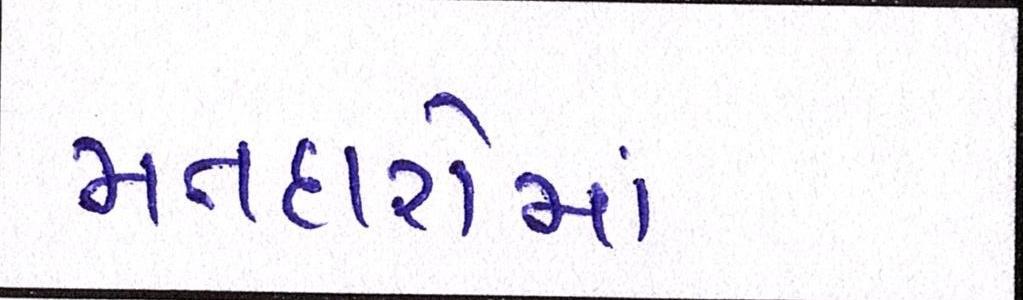 મતદારોમાં